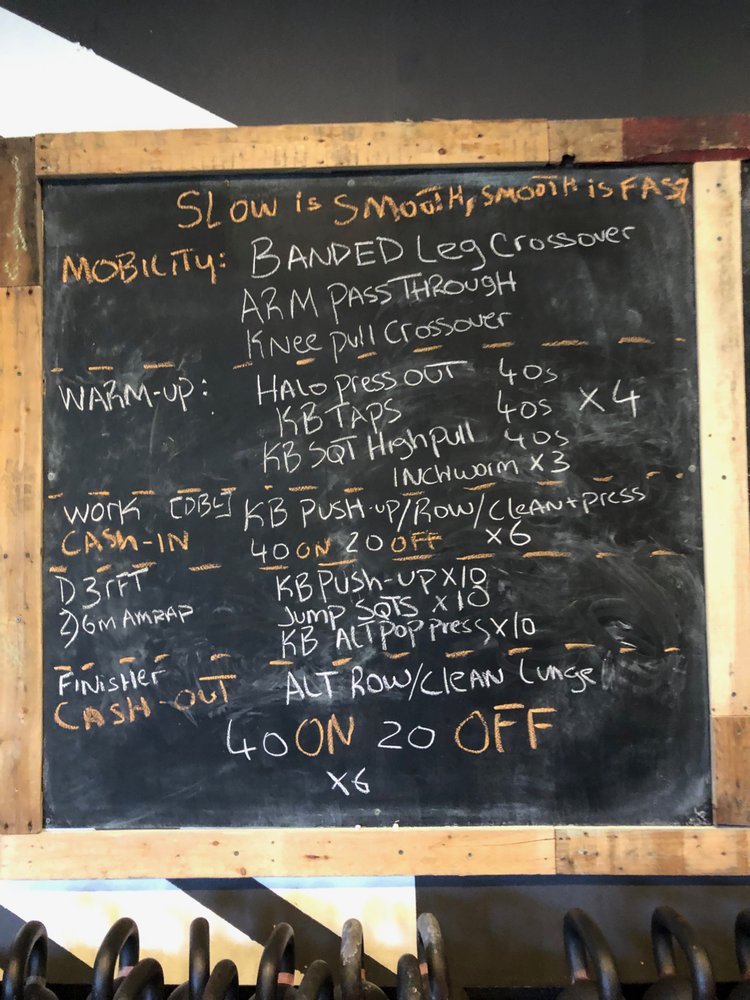 SLOW is SMOOTH, SMOOTH is FAST
MOBILITY: BANDED Leg Crossover
ARM PASS THROUGH
Knee pull Crossover
WARM-UP: HALO press OUT 40s
KB TAPS 40s X4
KB SQT High pull 40s
INCHWORM X3
WORK [DBL] KB PUSH-UP/ROW/Clean+press
CASH-IN 40 ON 20 OFF X6
1) 3rFT KB PUSH-UP X10
2) 6m AMRAP Jump SQTS X10
KB ALT POP press X10
FINISHER ALT ROW/CLEAN Lunge
CASH-OUT
40 ON 20 OFF
X6